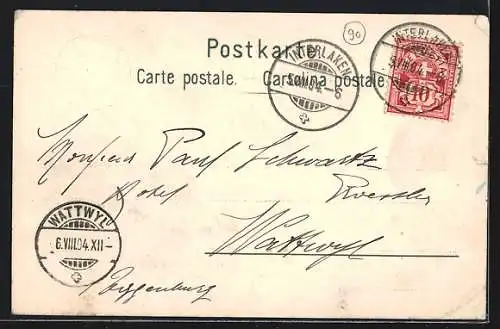 90
Postkarte
Carte postale. Cartolina postale
INTERLAKEN
5.VIII.04.-6
INTERLAKEN
5.VIII.04.-6
10
Monsieur Paul Schwartz
Hotel Roessli
Wattwyl
Toggenburg
WATTWYL
6.VIII.04.XII-